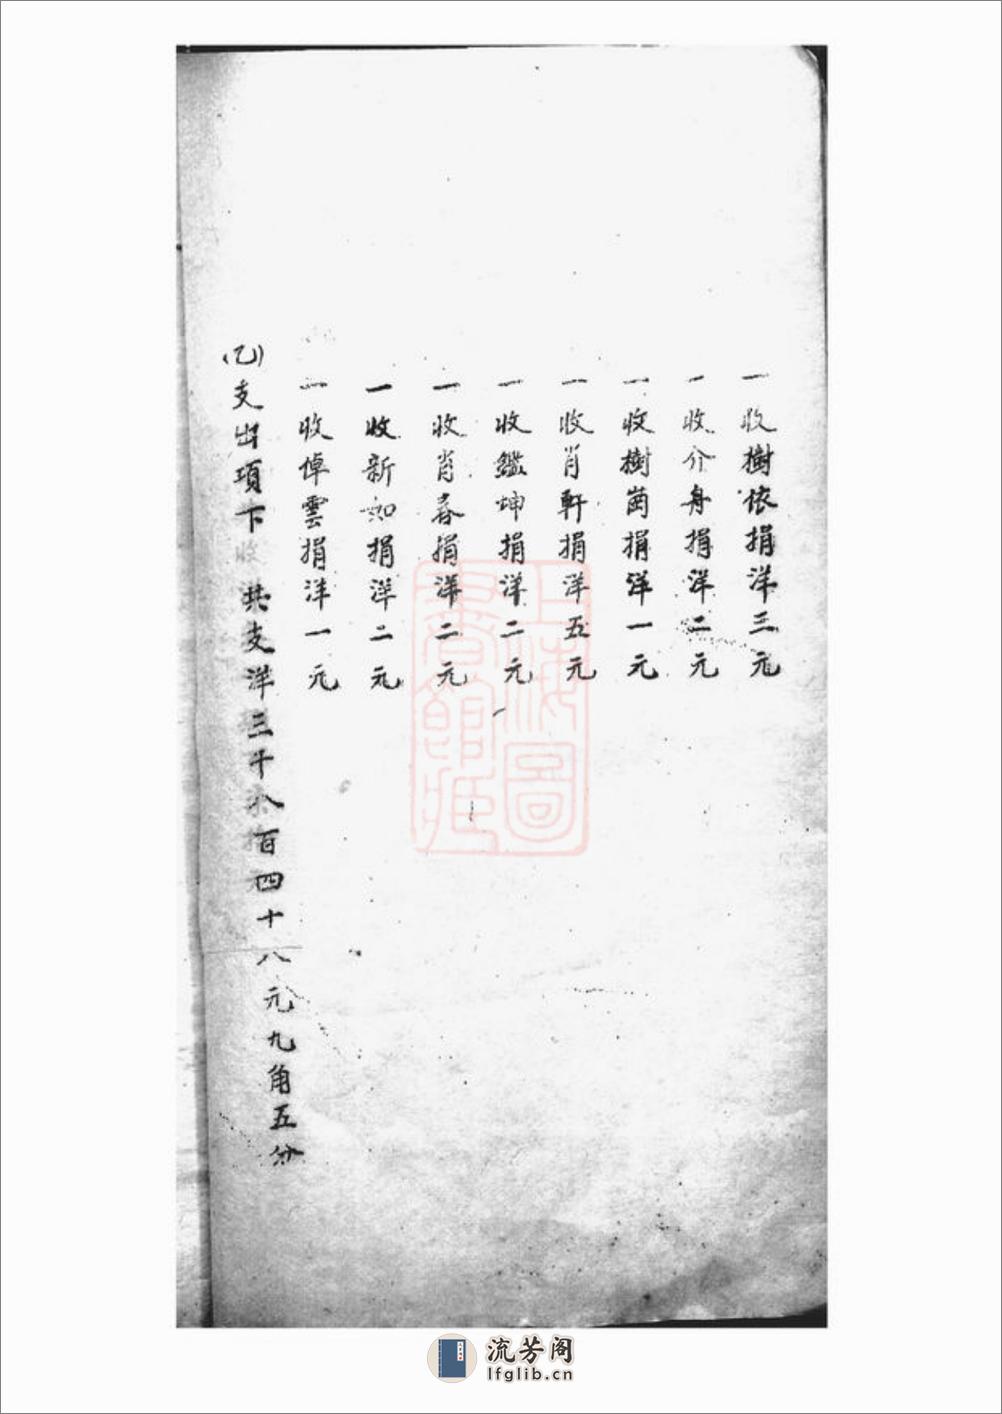 一收樹依捐洋三元
一收介舟捐洋二元
一收樹崗捐洋一元
一收肖軒捐洋五元
一收鑑坤捐洋二元
一收肖春捐洋二元
一收新如捐洋二元
一收倬雲捐洋一元
(乙)支出項下 共支洋三千八百四十八元九角五分
上海圖書館藏
流芳阁
lfglib.cn